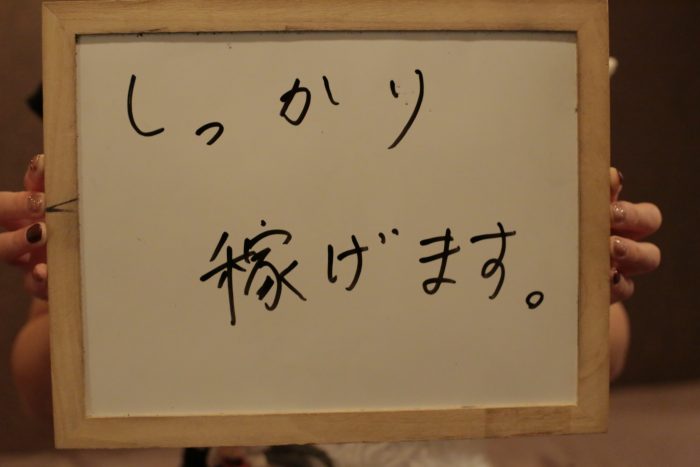 しっかり
稼げます。